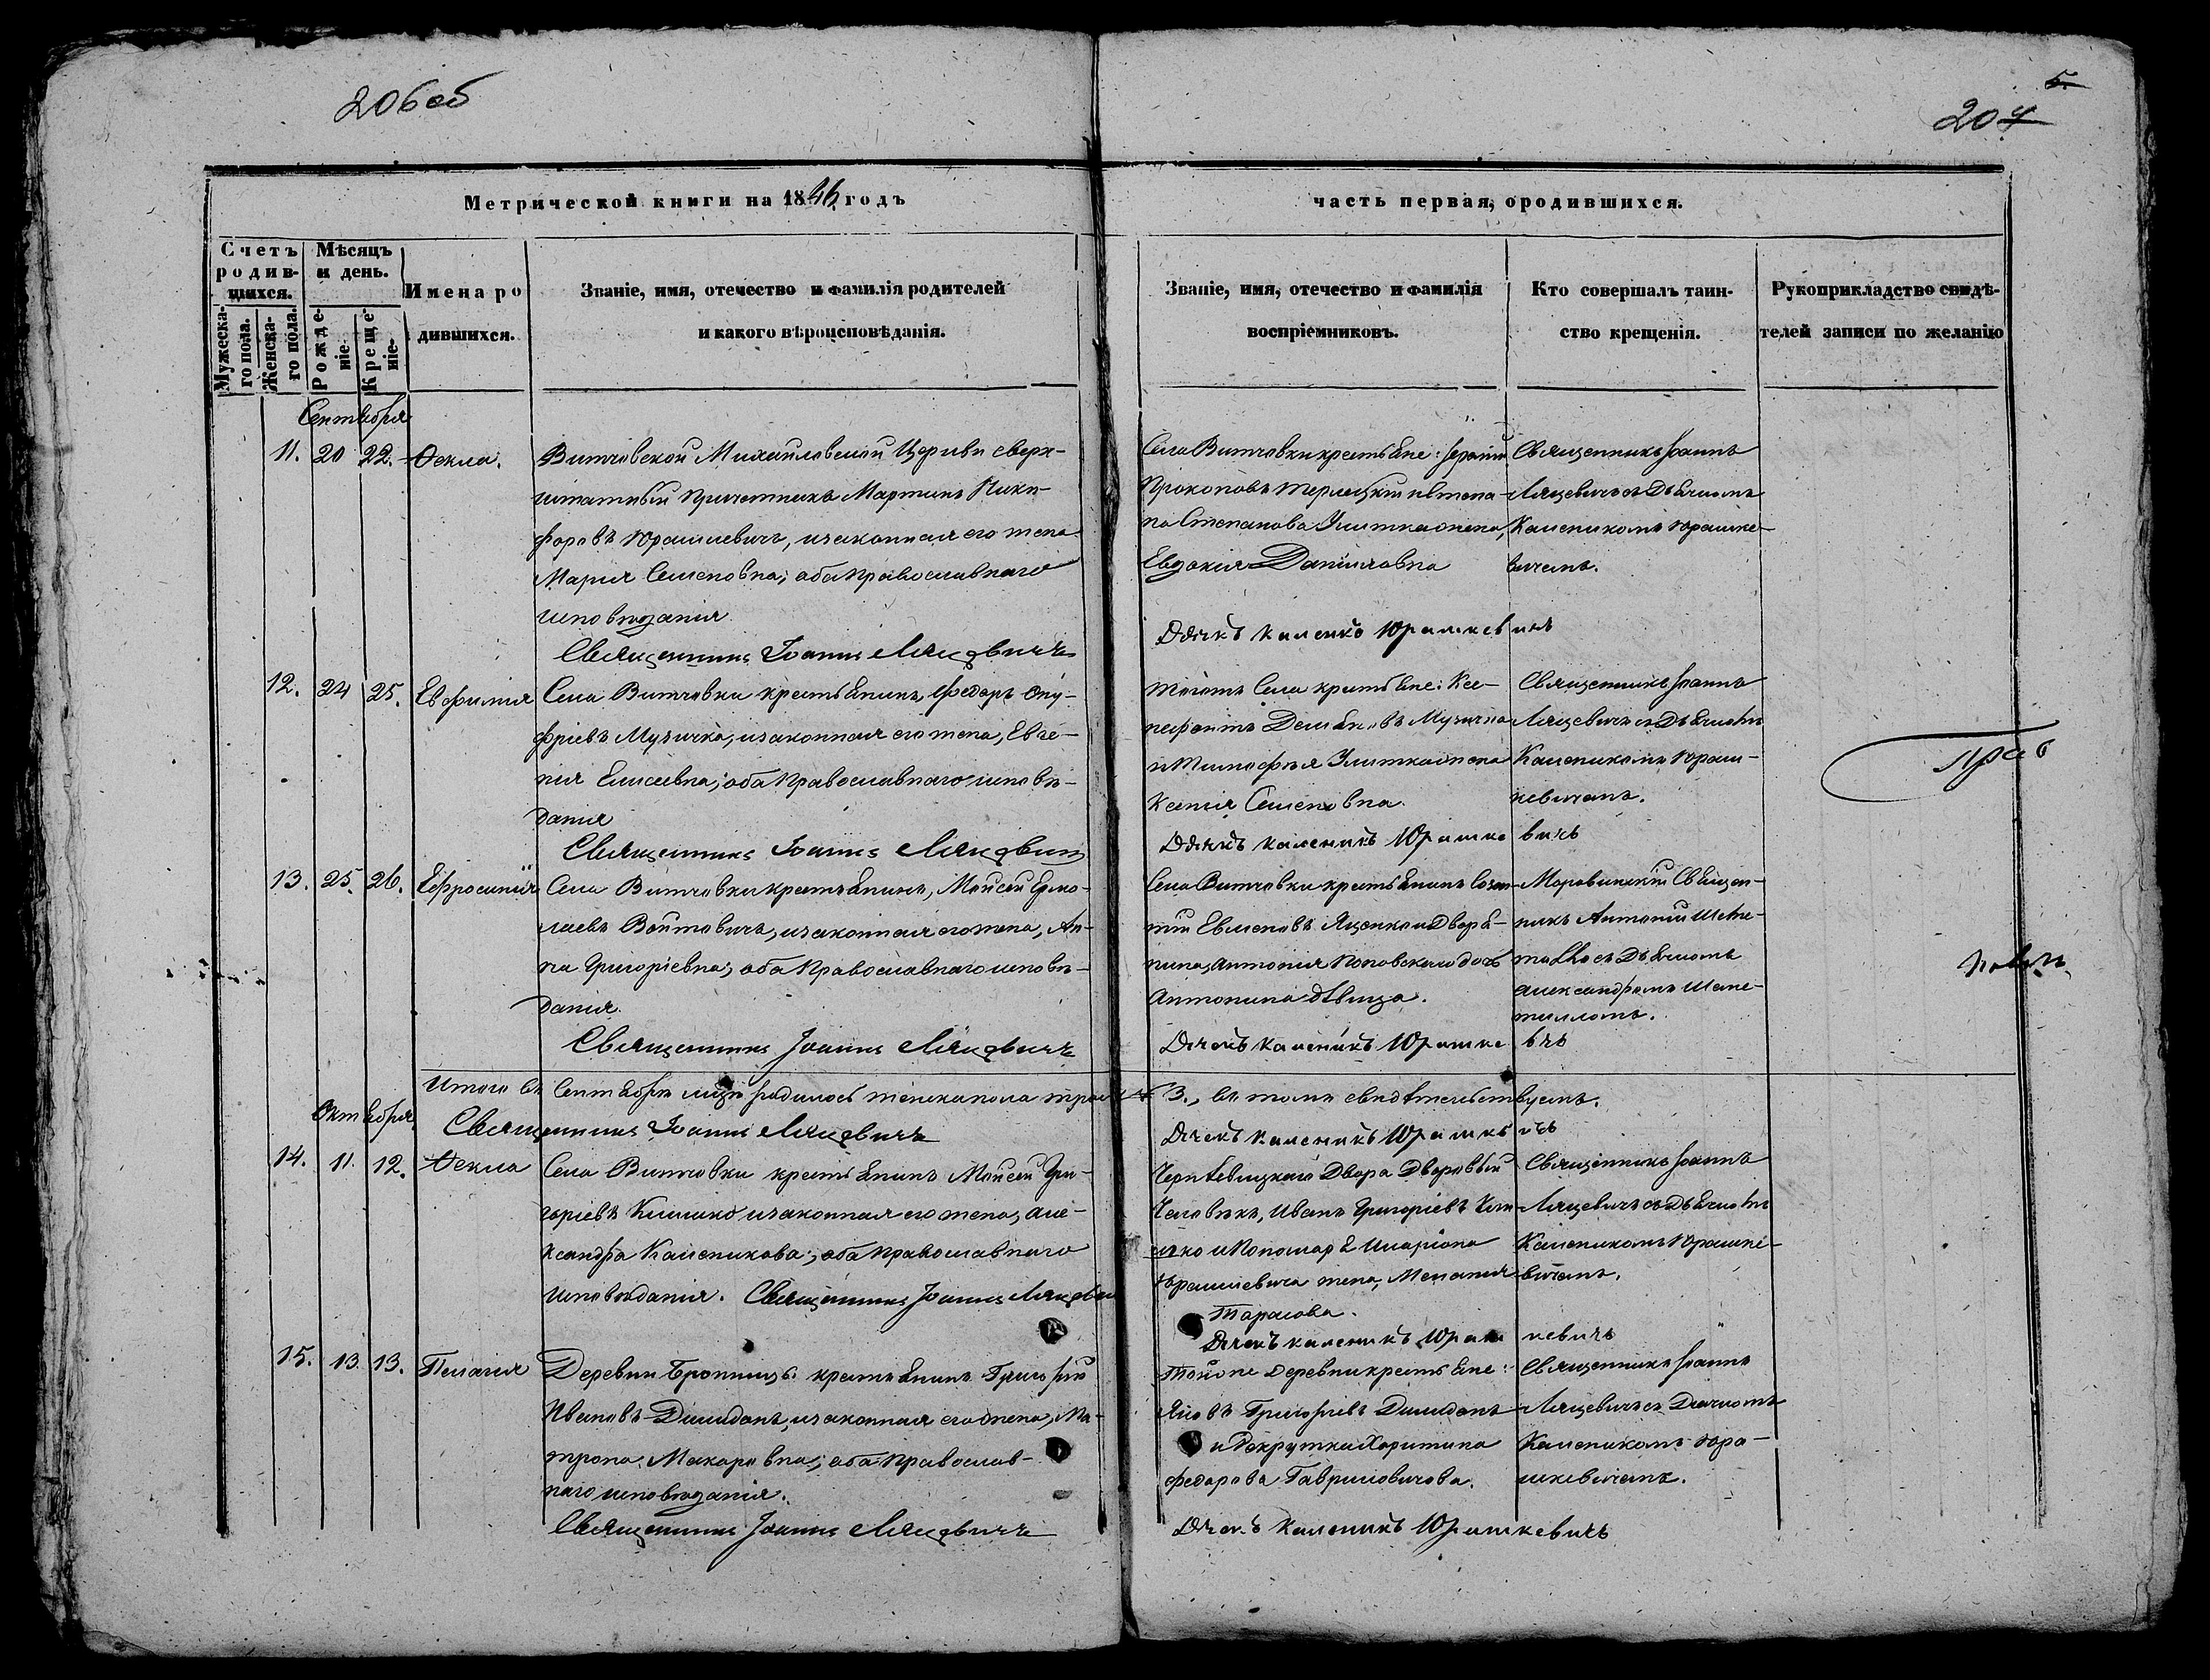 206 об
5.
207
Метрической книги на 1846 годъ
часть первая, о родившихся.
Счетъ родив-шихся.
Мужеска-го пола.
Женска-го пола.
Мѣсяцъ и день.
Рожде-ніе.
Креще-ніе.
Имена ро
дившихся.
Званіе, имя, отечество и фамилія родителей
и какого вѣроисповѣданія.
Званіе, имя, отечество и фамилія
воспріемниковъ.
Кто совершалъ таин-
ство крещенія.
Рукоприкладство свидѣ-
телей записи по желанію
Сентября
11. 20 22. Ѳекла.
Витчовской Михайловской Церкви сверх-
штатный Причетникъ Мартинъ Ники-
форовъ Юрашкевичъ, и законная его жена
Марія Семеновна, оба Православнаго
исповѣданія
Священникъ Іоаннъ Ляцевичъ
Села Витчовки крестьяне:
Прокоповъ Терлецкій и Степа-
на Степанова Улитка жена,
Евдокія Даниловна
Дячкъ Каленикъ Юрашкевичъ
Священникъ Іоаннъ
Ляцевичъ съ Дьячкомъ
Каленикомъ Юрашке-
вичемъ.
12. 24 25. Евфимія
Села Витчовки крестьянинъ, Федоръ Ону-
фріевъ Музычка, и законная его жена, Евге-
нія Елисеевна; оба Православнаго исповѣ-
данія
Священникъ Іоаннъ Ляцевичъ
Тогожъ Села крестьяне: Ксе-
нефонтъ Демьяновъ Музычка
и Тимофея Улитка жена
Ксенія Семеновна.
Дячкъ Каленикъ Юрашкевичъ
Священникъ Іоаннъ
Ляцевичъ съ Дьячкомъ
Каленикомъ Юраш-
кевичемъ.
13. 25. 26. Ефросинія
Села Витчовки крестьянинъ, Моисей Ермо-
лаевъ Войтовичъ, и законная его жена, Ан-
на Григоріевна, оба Православнаго исповѣ-
данія.
Священникъ Іоаннъ Ляцевичъ
Села Витчовки крестьянинъ
Евменовъ Яценко и Дворя-
нина, Антонія Поповскаго дочь
Антонина дѣвица.
Дячекъ Каленикъ Юрашкевчъ
Моровинскій Священ-
никъ Антоній
съ Дьячкомъ
Александромъ Шепе-
тилломъ.
Итого въ Сентябрѣ мцѣ родилось женска пола трое 3., въ томъ свидѣтельствуемъ.
Священникъ Іоаннъ Ляцевичъ
Дячекъ Каленикъ Юрашкевичъ
Октября
14. 11. 12. Ѳекла
Села Витчовки крестьянинъ Моисей Гри-
горіевъ Климко и законная его жена, Але-
ксандра Каленикова; оба Православнаго
исповѣданія. Священникъ Іоаннъ Ляцевич
Двора Дворовый
Человѣкъ, Иванъ Григоріевъ Кли-
мко и Пономаря Иларіона
Юрашкевича жена, Меланія
Тарасова.
Дячекъ Каленикъ Юрашкевичъ
Священникъ Іоаннъ
Ляцевичъ съ Дьячкомъ
Каленикомъ Юрашке-
вичемъ.
15. 13. 13. Пелагія
Деревни Бронницъ крестьянинъ Григорій
Ивановъ Демидонъ, и законная его жена, Ма-
трона Макаровна; оба Православ-
наго исповѣданія.
Священникъ Іоаннъ Ляцевичъ
Тойже Деревни крестьяне:
Яковъ Григоріевъ Демидонъ
и Рекрутка Харитина
Федорова Гавриловичова.
Дячекъ Каленикъ Юрашкевичъ
Священникъ Іоаннъ
Ляцевичъ съ Дьячкомъ
Каленикомъ Юра-
шкевичемъ.